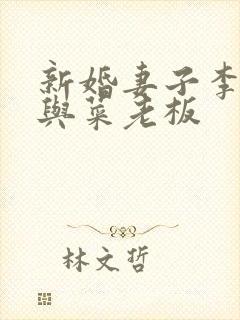 新婚妻子李
與菜老板
林文哲